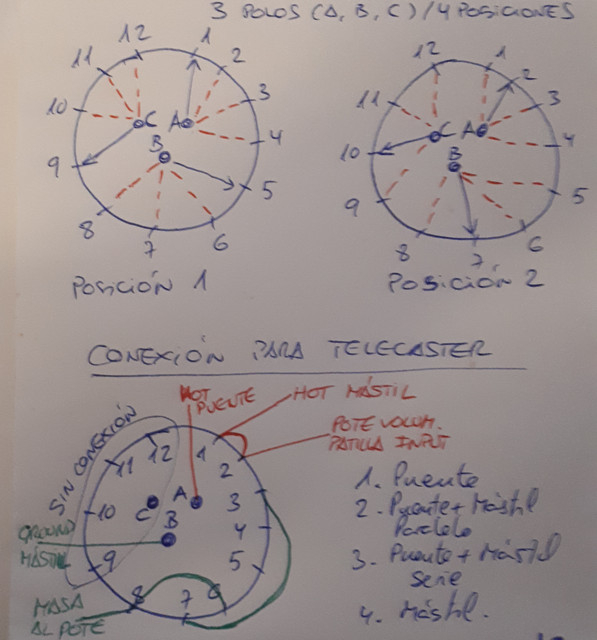 3 POLOS (A, B, C) / 4 POSICIONES
12 1 2 3 4 5 6 7 8 9 10 11
C A B
12 1 2 3 4 5 6 7 8 9 10 11
C A B
POSICIÓN 1
POSICIÓN 2
CONEXIÓN PARA TELECASTER
HOT PUENTE
HOT MÁSTIL
POTE VOLUM.
PATILLA INPUT
SIN CONEXIÓN
12 1 2 3 4 5 6 7 8 9 10 11
C A B
GROUND
MÁSTIL
MASA
AL POTE
1. Puente
2. Puente + Mástil
Paralelo
3. Puente + Mástil
Serie
4. Mástil.